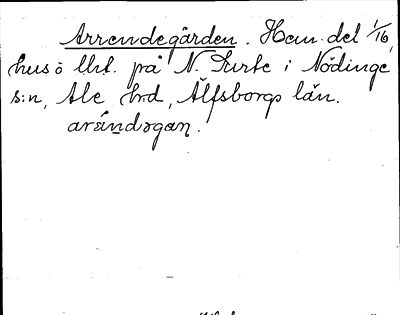 Arrendegården. Hem.del 1/16,
hus o lht. på N. Surte i Nödinge
s:n, Ale hrd, Älfsborgs län.
aråndəgan.